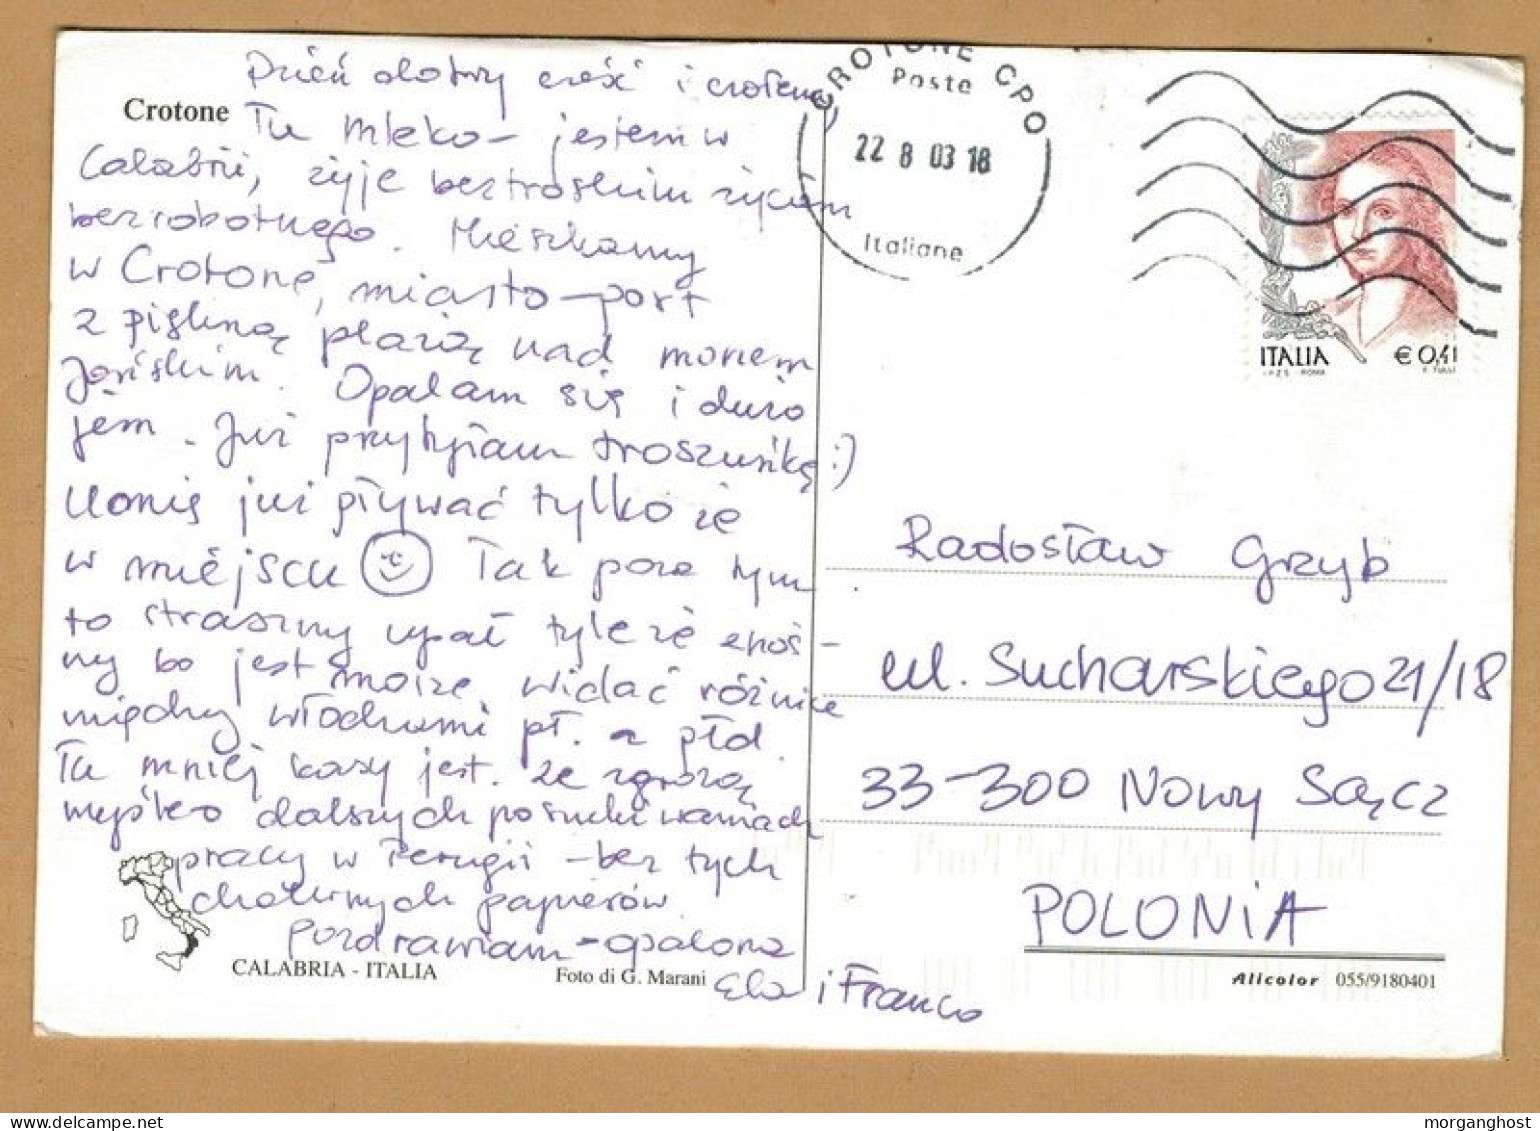 Crotone
Dzień dobry cześć i czołem,
Tu Mleko - jestem w
Calabrii, żyje beztroskim życiem
bezrobotnego. Mieszkamy
w Crotone, miasto-port
z piękną plażą nad morzem
Jońskim. Opalam się i dużo
jem. Już przytyłam troszunkę :)
Uonię już pływać tylko że
w miejscu Tak poza tym
to straszny upał tyle że znoś-
ny bo jest morze, widać różnice
między włochami pł. a płd.
Tu mniej kasy jest. Ze zgrozą
myślę o dalszych poszukiwaniach
pracy w Perugii - bez tych
cholernych papierów.
Pozdrawiam - opalona
Ela i Franco
CROTONE CPO
Poste
22 8 03 18
Italiane
ITALIA € 0,41
I.P.Z.S. - ROMA F. TULLI
Radosław Grzyb
ul. Sucharskiego 21/18
33-300 Nowy Sącz
POLONIA
CALABRIA - ITALIA
Foto di G. Marani
Alicolor 055/9180401
morganghost